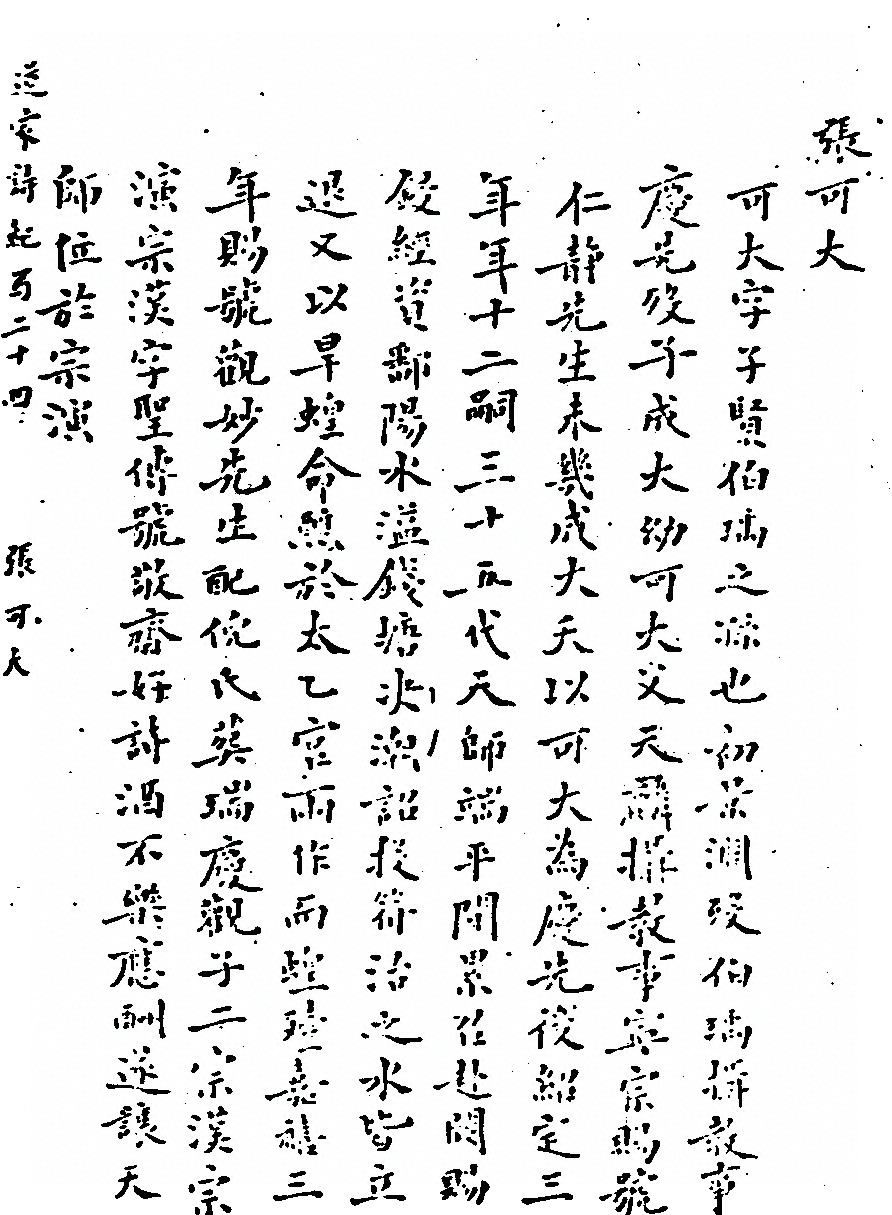 張可大
可大字子賢伯瑀之孫也初景淵歿伯瑀攝教事
慶先歿子成大幼可大父天麟攝教事寧宗賜號
仁靜先生未幾成大夭以可大為慶先後紹定三
年年十二嗣三十五代天師端平間累召赴闕賜
錢經資鄱陽水溢錢塘決潮詔投符治之水皆立
退又以旱蝗命醮於太乙宮雨作而蝗殪嘉禧三
年賜號觀妙先生配倪氏葬瑞慶觀子二宗漢宗
演宗漢字聖傳號敬齋好詩酒不樂應酬遂讓天
師位於宗演
道家詩紀百二十四
張可大